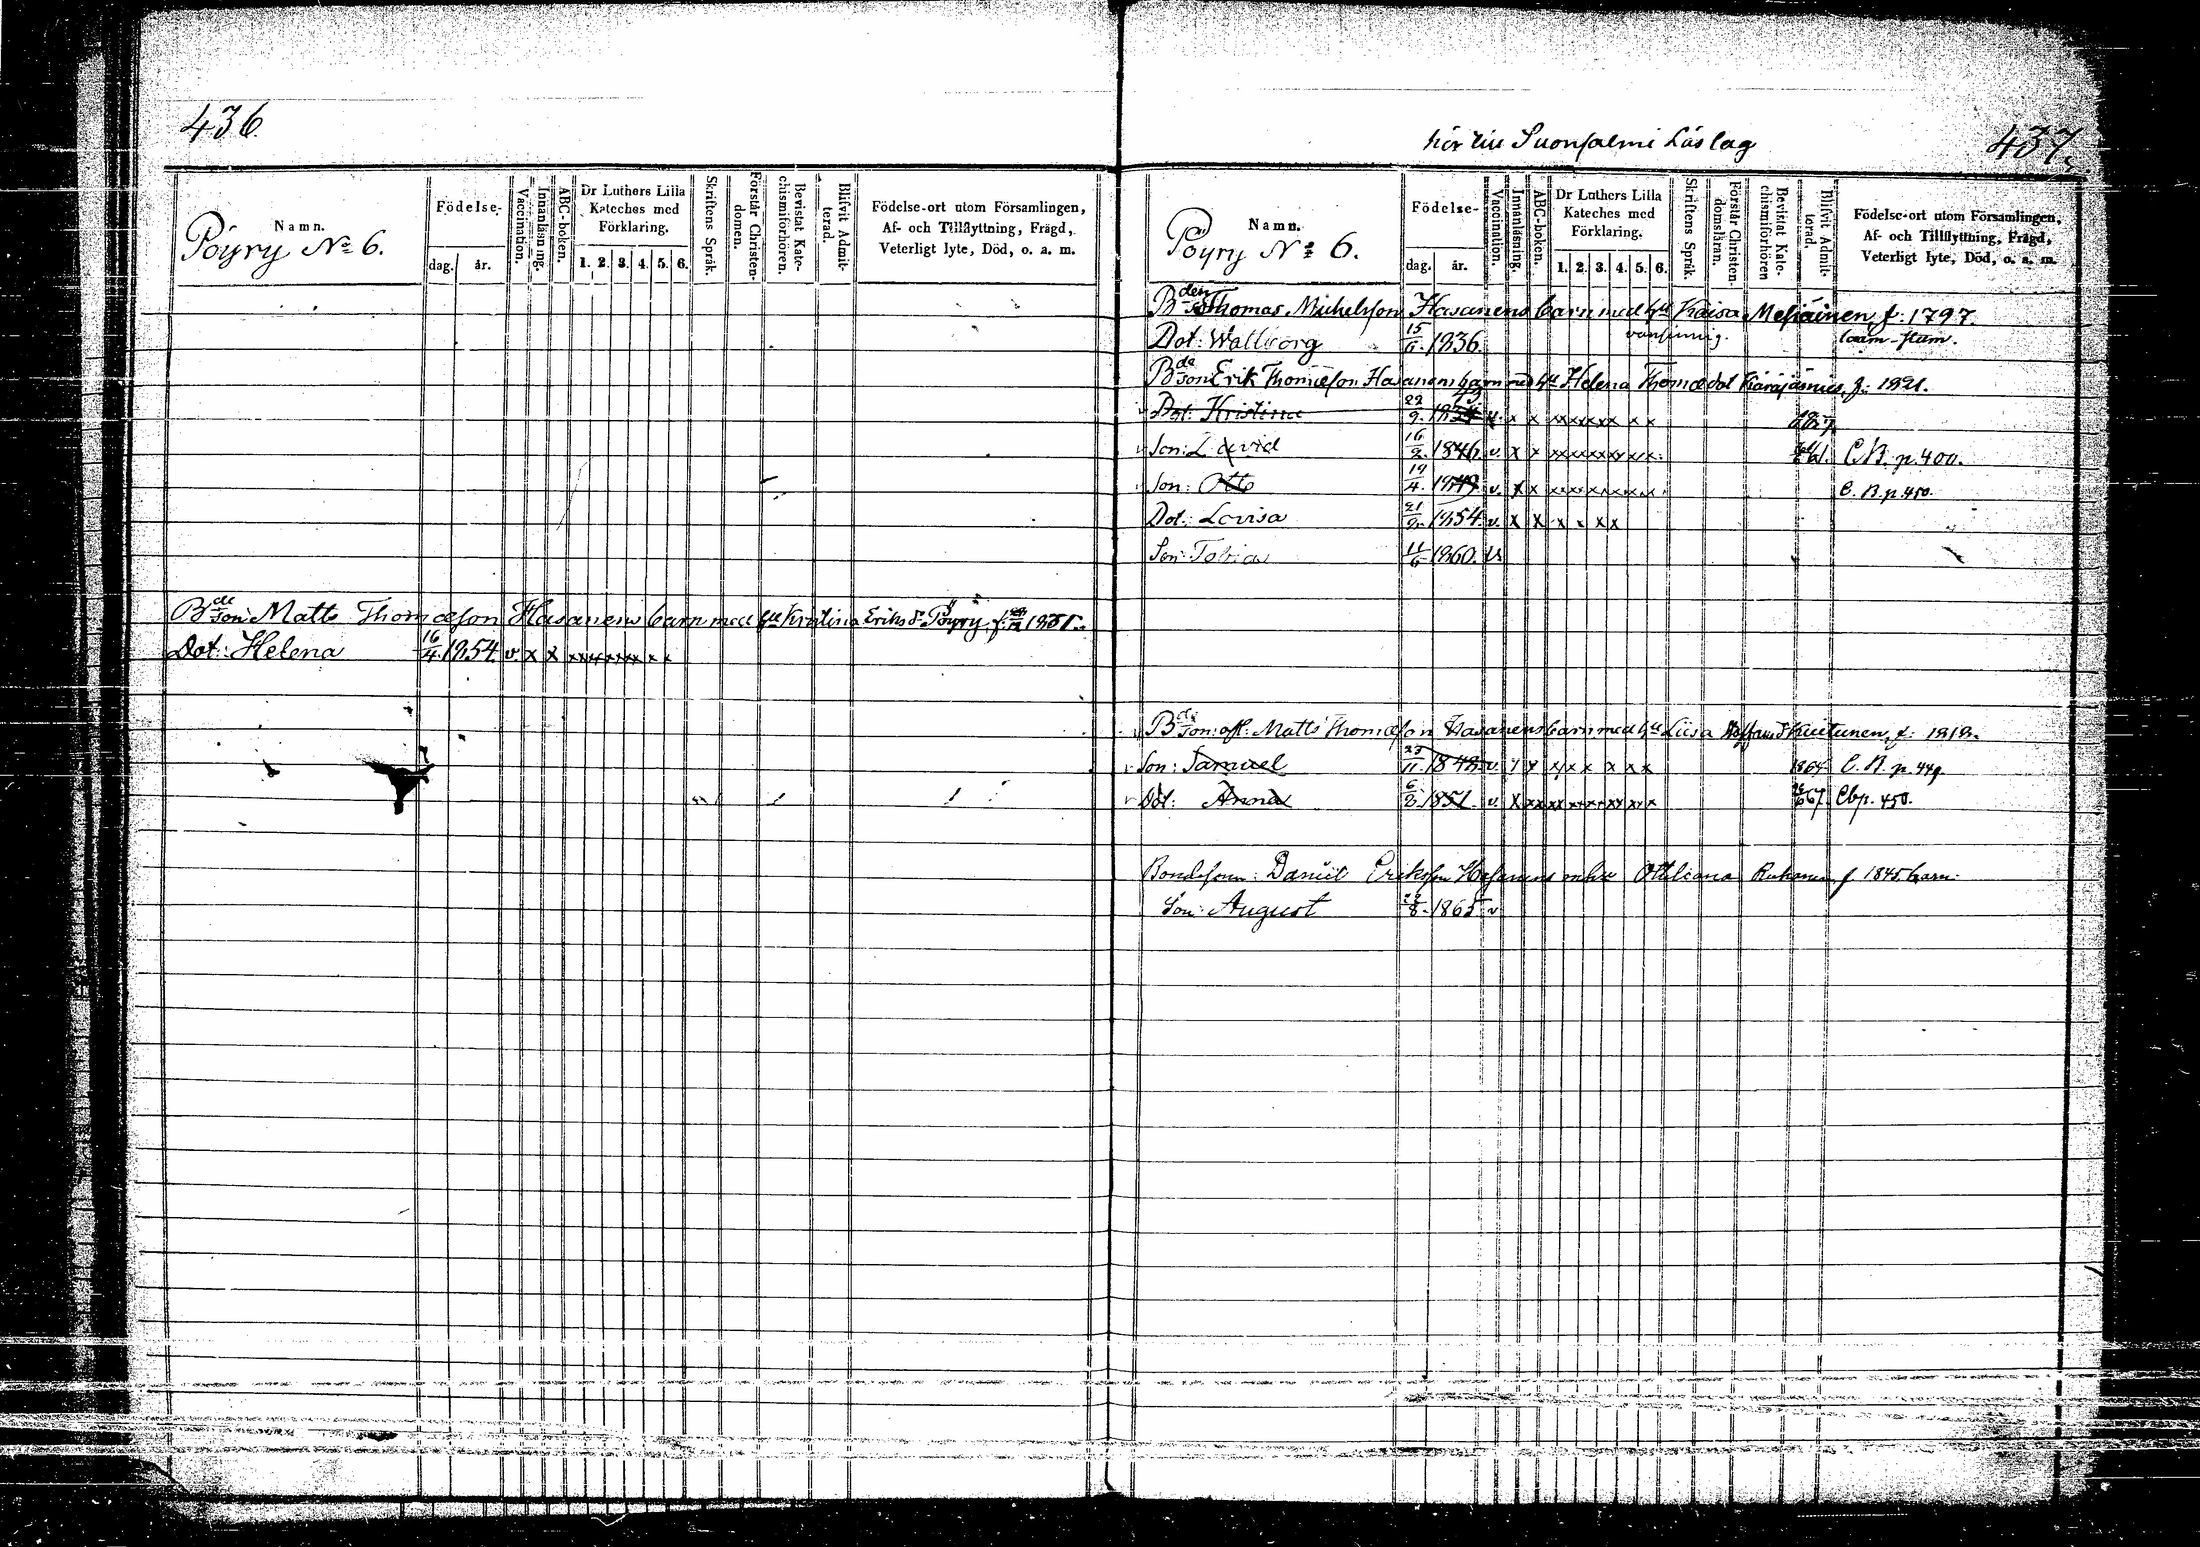 436.
Namn.
Födelse-
dag. år.
Vaccination.
Innanläsning.
ABC-boken.
Dr Luthers Lilla
Kateches med
Förklaring.
1. 2. 3. 4. 5. 6.
Skriftens Språk.
Förstår Christen-
domen.
Bevistat Kate-
chismiförhören.
Blifvit Admit-
terad.
Födelse-ort utom Församlingen,
Af- och Tillflyttning, Frägd,
Veterligt lyte, Död, o. a. m.
Pöyry No 6.
Bde son: Matts Thomæson Hasanens barn med hu Kristina Eriks dr Pöyry, f. 1831.
Dot: Helena 16/4 1854. v. x x xxxxxxx x x
hör till Suonsalmi Läslag
437.
Namn.
Födelse-
dag. år.
Vaccination.
Innanläsning.
ABC-boken.
Dr Luthers Lilla
Kateches med
Förklaring.
1. 2. 3. 4. 5. 6.
Skriftens Språk.
Förstår Christen-
domsläran.
Bevistat Kate-
chismiförhören
Blifvit Admit-
terad.
Födelse-ort utom Församlingen,
Af- och Tillflyttning, Frägd,
Veterligt lyte, Död, o. a. m.
Pöyry No 6.
Bden Thomas Michelsson Hasanens barn med hu Kaisa f. 1797.
Dot: Wallborg 15/6 1836. vansinnig.
Bde son Erik Thomæson Hasanens barn med hu Helena Thomædot f. 1821.
Dot: Kristina 22/9 v. x x xxxxxx x x
Son: David 16/2 1846. v. x x xxxxxxxxx C.B. p. 400.
Son: Otto 19/4 1849 v. x x xxxxxxxxx C.B. p. 450.
Dot: Lovisa 21/2 1854. v. x x x x x x
Son: Tobias 11/6 1860. v
Bde son: Matts Thomæson Hasanens barn med hu Liisa f. 1818.
Son: Samuel 23/11 1848 v. x x xx x x x x 1864 C.B. p. 449.
Dot: Anna 6/2 1851. v. x xx xx xxxxxx xx x Cbp. 450.
Bondeson: Daniel Eriksson Hasanens Otteliana f. 1845 barn.
Son: August 1865 v